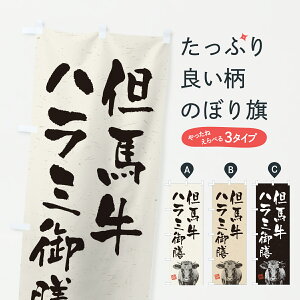 但馬牛
ハラミ御膳
たっぷり
良い柄
のぼり旗
やったね
えらべる3タイプ
A
B
C
但馬牛
ハラミ御膳
但馬牛
ハラミ御膳
但馬牛
ハラミ御膳